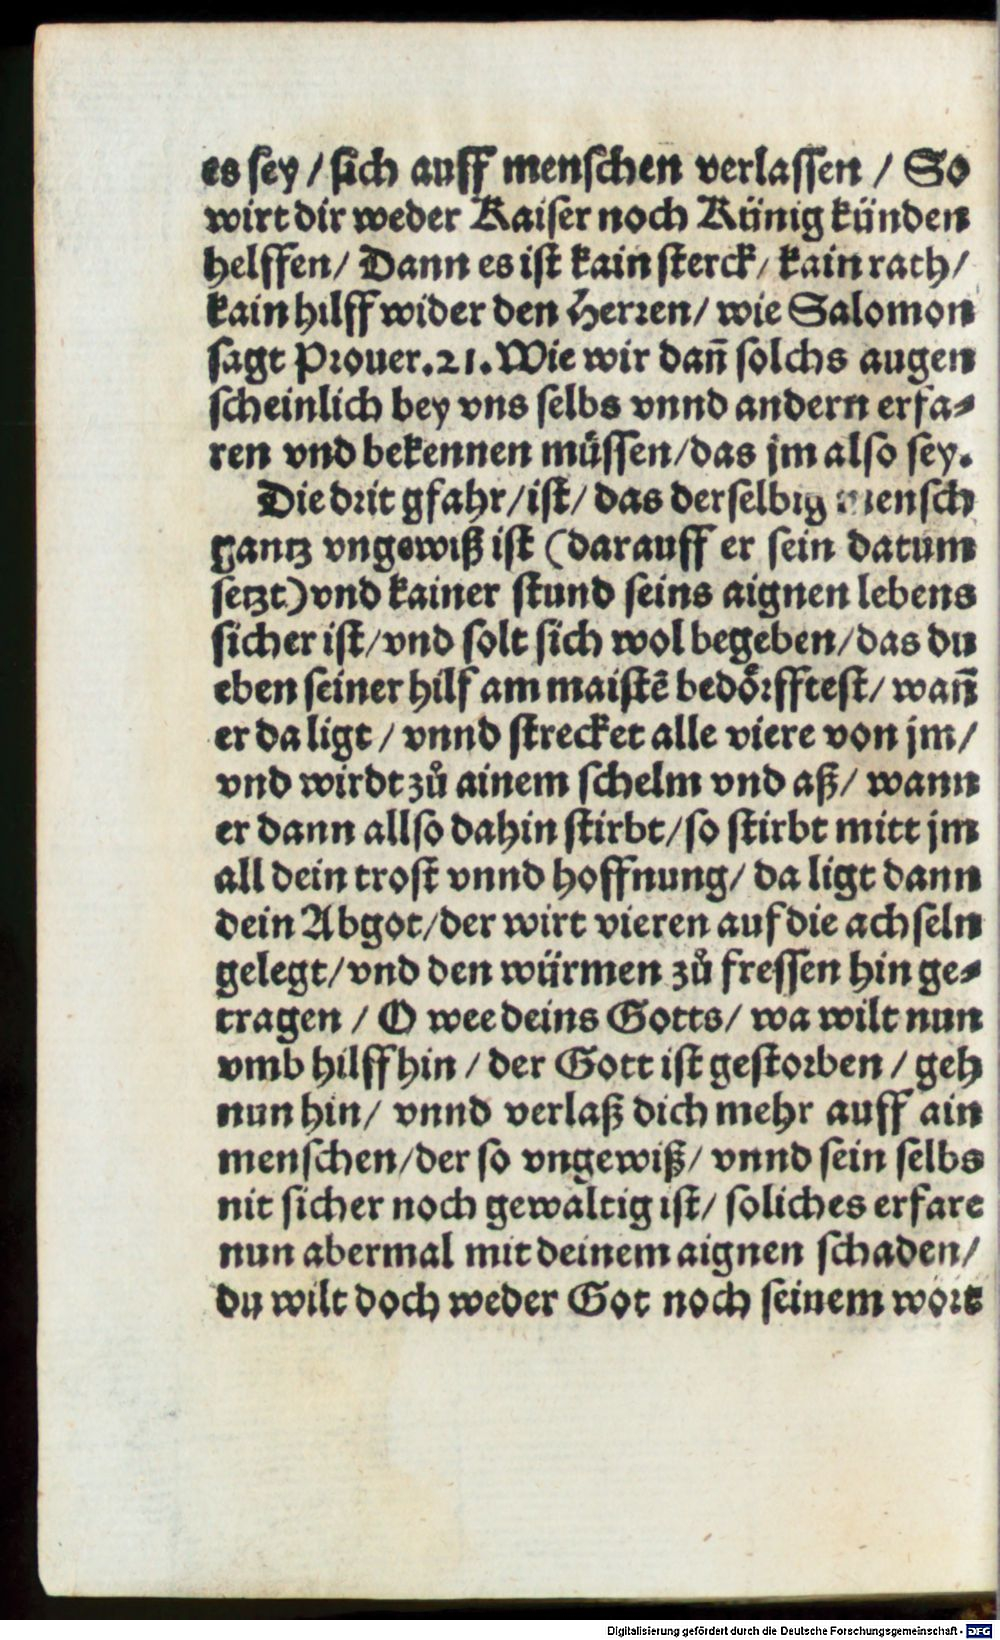 es sey / sich auff menschen verlassen / So
wirt dir weder Kaiser noch Künig künden
helffen / Dann es ist kain sterck / kain rath /
kain hilff wider den Herren / wie Salomon
sagt Prouer. 21. Wie wir dañ solchs augen
scheinlich bey vns selbs vnnd andern erfa⸗
ren vnd bekennen müssen / das jm also sey.
Die drit gfahr / ist / das derselbig mensch
gantz vngewiß ist (darauff er sein datum
setzt) vnd kainer stund seins aignen lebens
sicher ist / vnd solt sich wol begeben / das du
eben seiner hilf am maistẽ bedoͤrfftest / wañ
er da ligt / vnnd strecket alle viere von jm /
vnd wirdt zuͦ ainem schelm vnd aß / wann
er dann allso dahin stirbt / so stirbt mitt jm
all dein trost vnnd hoffnung / da ligt dann
dein Abgot / der wirt vieren auf die achseln
gelegt / vnd den würmen zuͦ fressen hin ge⸗
tragen / O wee deins Gotts / wa wilt nun
vmb hilff hin / der Gott ist gestorben / geh
nun hin / vnnd verlaß dich mehr auff ain
menschen / der so vngewiß / vnnd sein selbs
nit sicher noch gewaltig ist / soliches erfare
nun abermal mit deinem aignen schaden /
du wilt doch weder Got noch seinem wort
Digitalisierung gefördert durch die Deutsche Forschungsgemeinschaft - DFG